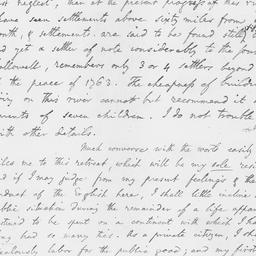 neglect; than at the present progress of this
have seen settlements above sixty miles from
mouth, & settlements are said to be found still
and yet a settler of note considerably to the
Hallowell, remembers only 3 or 4 settlers beyond
the peace of 1763. The cheapness of build
on this river cannot but recommend it
parents of seven children. I do not trouble
with other details.
Much converse with the world easily
me to this retreat which will be my sole
and if I may judge from my present feelings & the
conduct of the English here, I shall little incline
public situation during the remainder of a life
to be spent on a continent with which I
had so many ties. As a private citizen, I
zealously labor for the public good; and my first